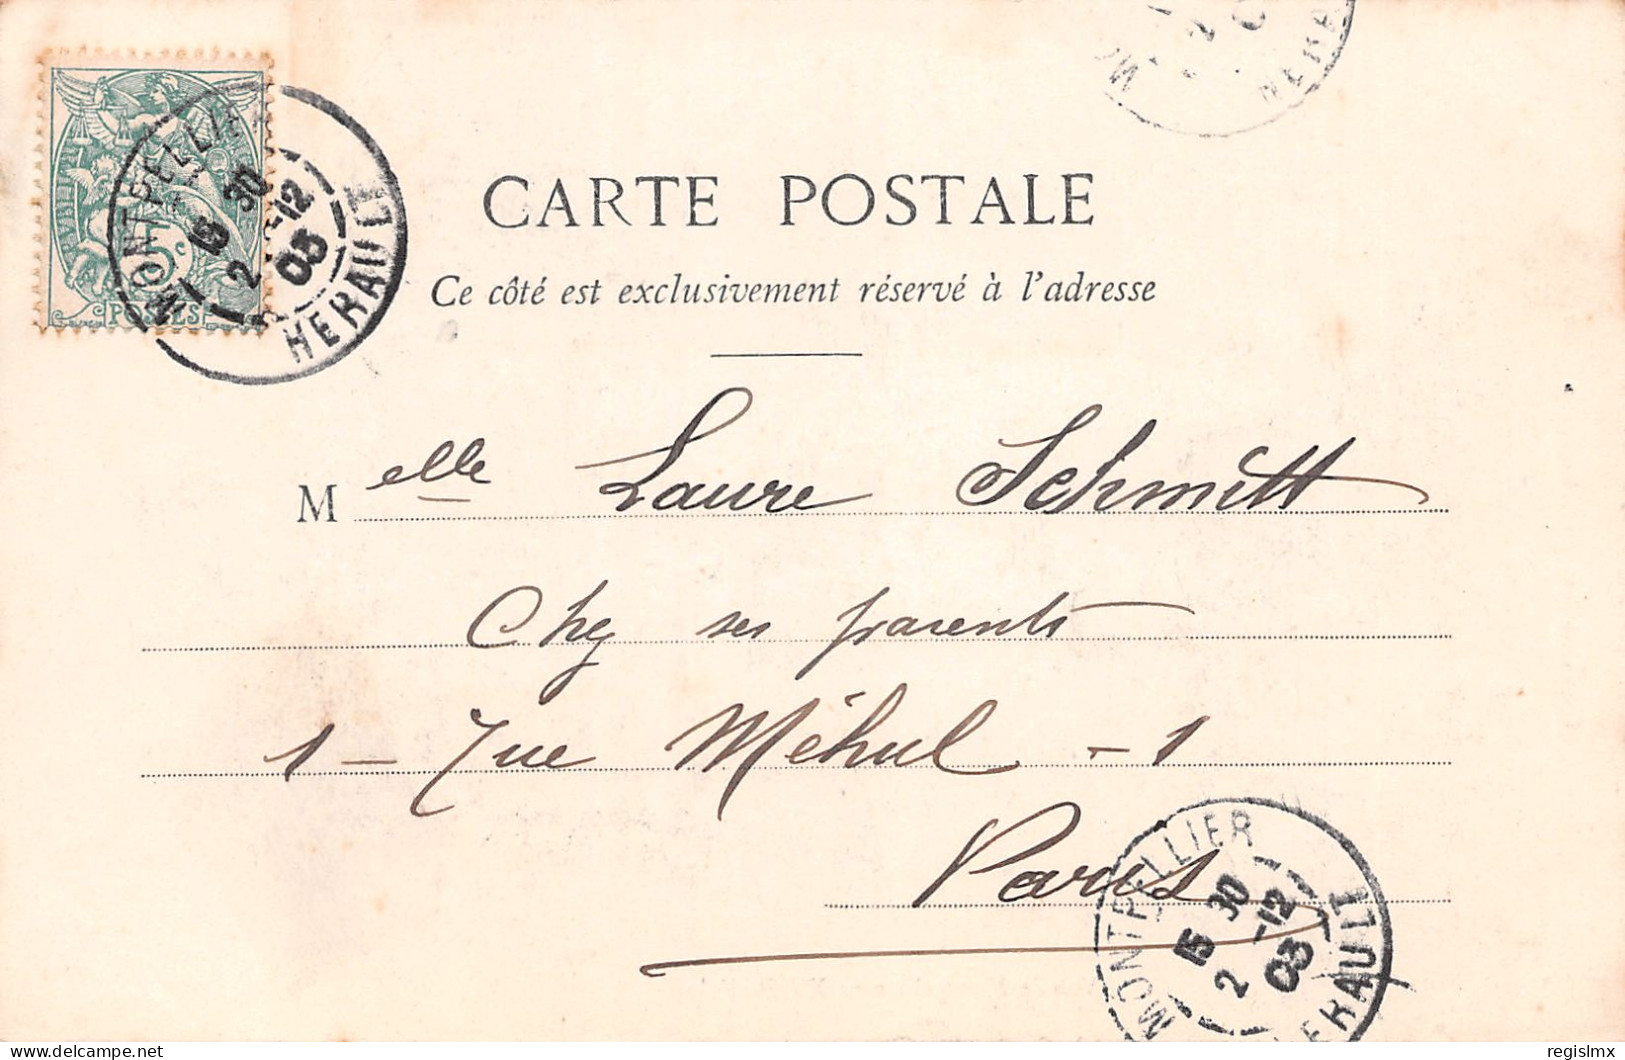 MONTPELLIER
15 30
2 -12
03
HERAULT
5c
POSTES
CARTE POSTALE
Ce côté est exclusivement réservé à l'adresse
Melle Laure Schmitt
Chez ses parents
1 – rue Méhul – 1
Paris
MONTPELLIER
15 30
2 -12
03
HERAULT
delcampe.net
regislmx